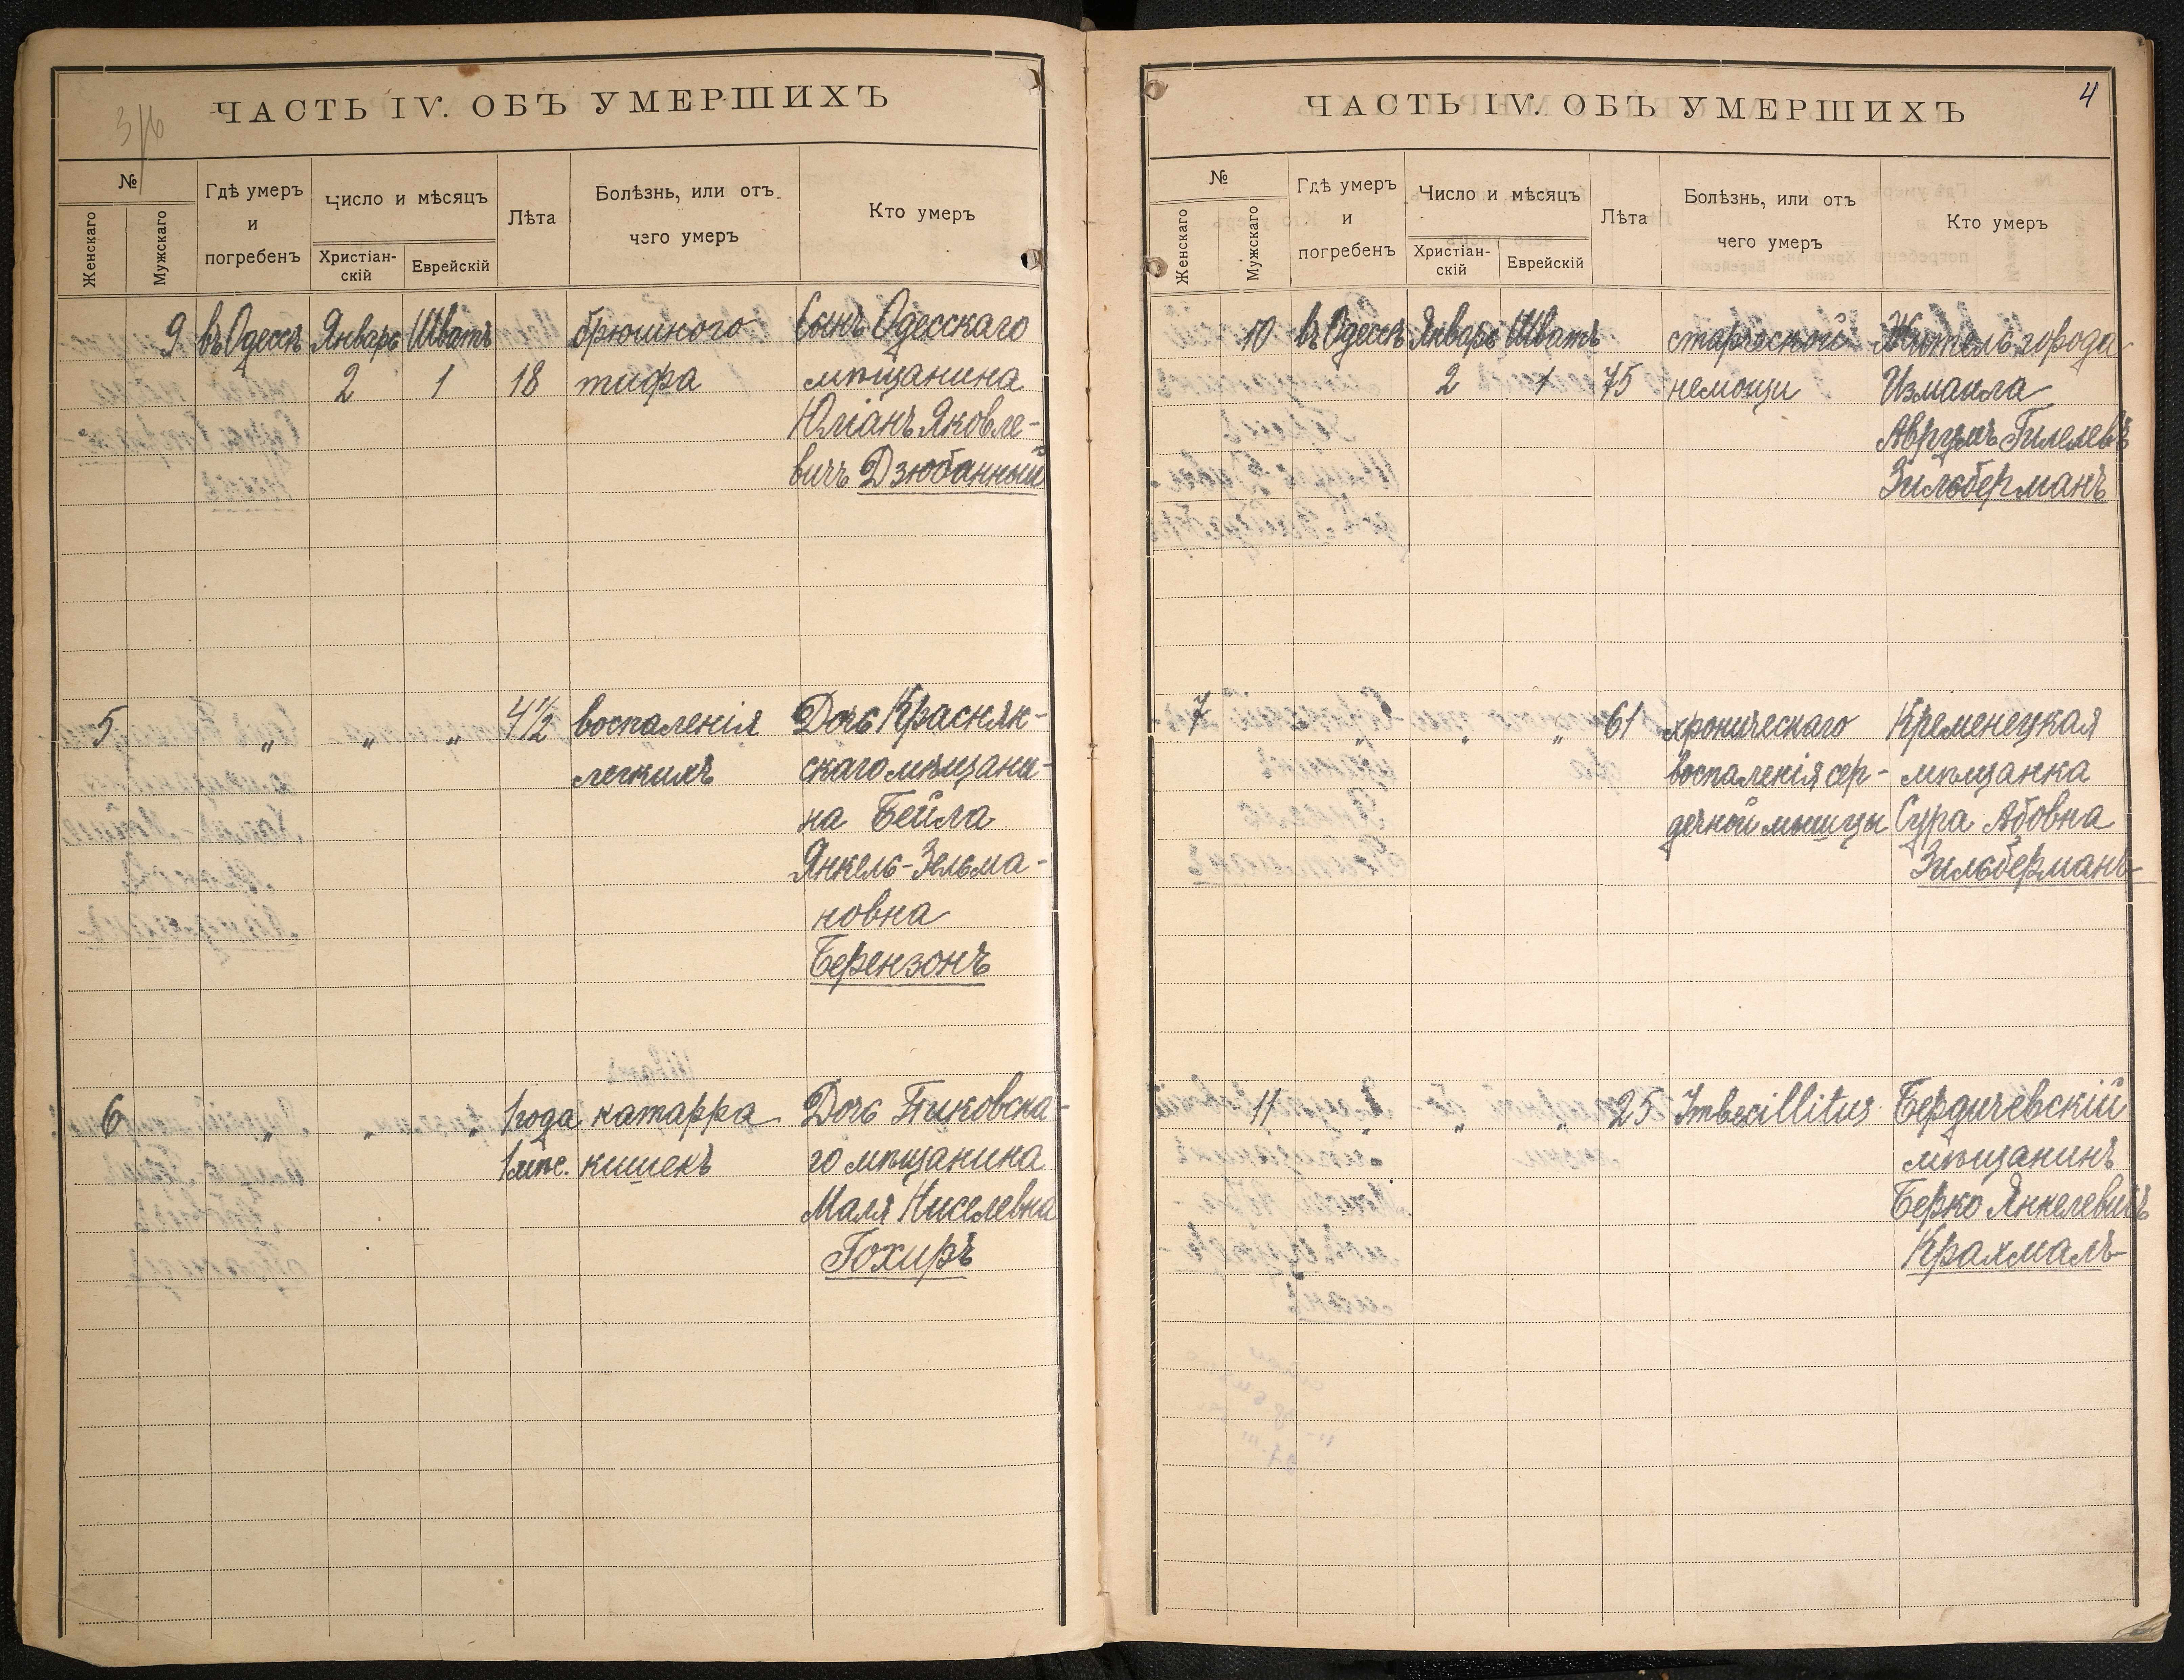 3/6
ЧАСТЬ IV. ОБЪ УМЕРШИХЪ
№
Женскаго
Мужскаго
Гдѣ умеръ
и
погребенъ
Число и мѣсяцъ
Христіан-
скій
Еврейскій
Лѣта
Болѣзнь, или отъ
чего умеръ
Кто умеръ
9 въ Одессѣ Январь Шватъ брюшного Сынъ Одесскаго
2 1 18 тифа мѣщанина
Юліанъ Яковле-
вичъ Дзюбанный
5 " " " 4½ воспаленія Дочь Краснян-
легкихъ скаго мѣщани-
на Бейла
Янкель-Зельма-
новна
Берензонъ
6 " " " 1 года катарра Дочь Пиковска-
1 мѣс. кишекъ го мѣщанина
Маля Киселевна
Гохиръ
4
ЧАСТЬ IV. ОБЪ УМЕРШИХЪ
№
Женскаго
Мужскаго
Гдѣ умеръ
и
погребенъ
Число и мѣсяцъ
Христіан-
скій
Еврейскій
Лѣта
Болѣзнь, или отъ
чего умеръ
Кто умеръ
10 въ Одессѣ Январь Шватъ старческой Житель города
2 1 75 немощи Измаила
Аврумъ Гилелевъ
Зильберманъ
7 " " " 61 хроническаго Кременецкая
воспаленія сер- мѣщанка
дечной мышцы Сура Абовна
Зильберманъ
11 " " " 25 Imbecillitus Бердичевскій
мѣщанинъ
Берко Янкелевичъ
Крахмаль